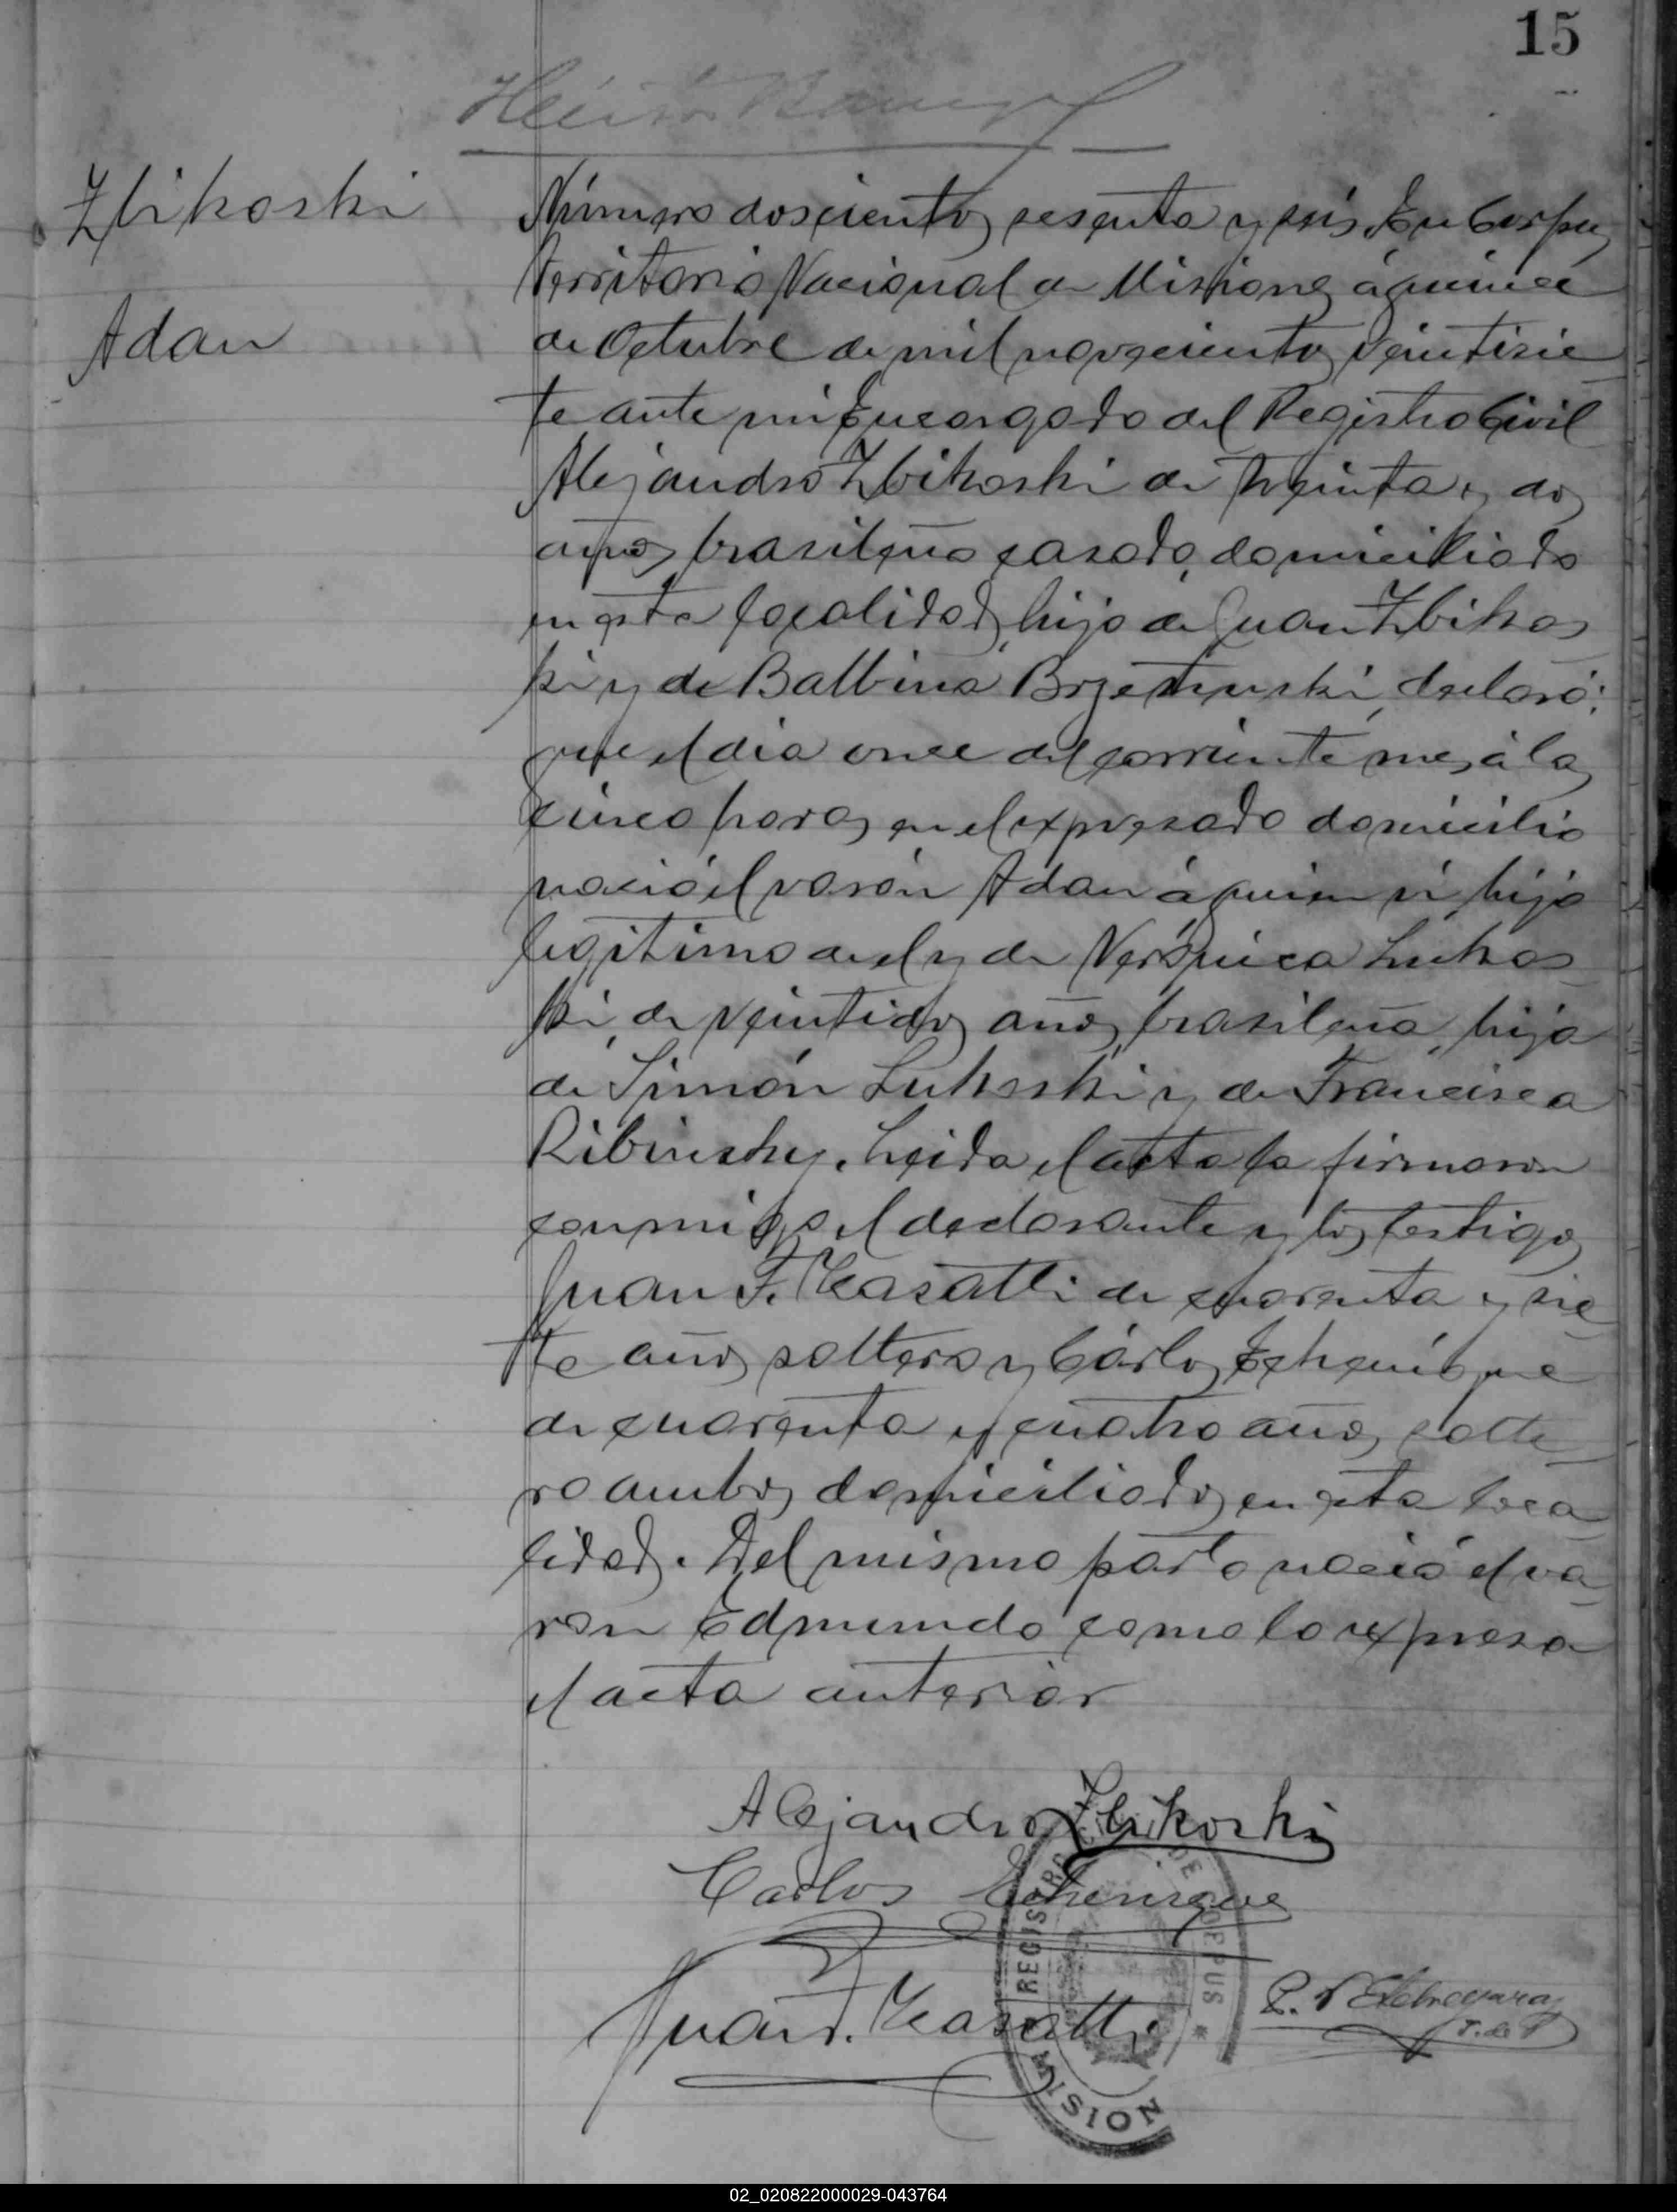 15
Zbikoski
Adan
Número doscientos sesenta y seis. En Corpus
Territorio Nacional de Misiones á quince
de Octubre de mil novecientos veintisie
te ante mi Encargado del Registro Civil
Alejandro Zbikoski de treinta y dos
años, brasileño casado, domiciliado
en esta localidad, hijo de Juan Zbikos
ki y de Balbina declaró:
que el dia once del corriente mes, á las
cinco horas en el expresado domicilio
nació el varón Adan á quien ví, hijo
legitimo de el y de Verónica Lukos
ki, de veintidos años, brasileña, hija
de Simón Lukoski y de Francisca
Ribinsky. Leida el acta la firmaron
conmigo el declarante y los testigos
Juan F. Casatti de cuarenta y sie
te años soltero y Cárlos Echenique
de cuarenta y cuatro años, solte
ro ambos domiciliados en esta loca
lidad. Del mismo parto nació el va
ron Edmundo como lo expresa
el acta anterior
Alejandro Zbikoski
Carlos Echenique
Juan F. Casatti
Etchegaray
J. de P.
REGISTRO DE CORPUS
MISION
02_020822000029-043764